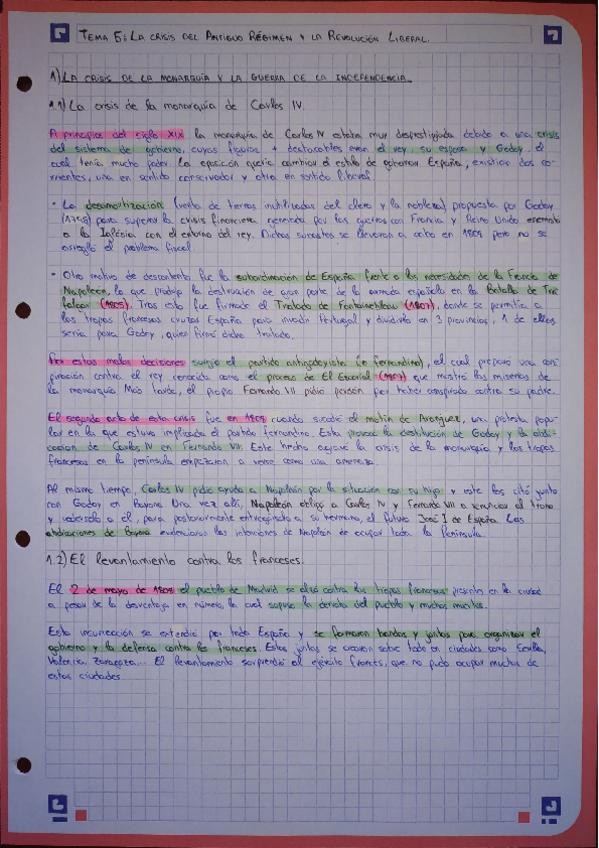 TEMA 5: LA CRISIS DEL ANTIGUO RÉGIMEN Y LA REVOLUCIÓN LIBERAL.
1) LA CRISIS DE LA MONARQUÍA Y LA GUERRA DE LA INDEPENDENCIA
1.1) La crisis de la monarquía de Carlos IV.
A principios del siglo XIX la monarquía de Carlos IV estaba muy desprestigiada debido a una crisis
del sistema de gobierno, cuyas figuras + destacables eran el rey, su esposa y Godoy, el
cual tenía mucho poder. La oposición quería cambiar el estilo de gobernar España, existían dos co-
rrientes, una en sentido conservador y otra en sentido liberal.
· La desamortización (venta de tierras inutilizadas del clero y la nobleza) propuesta por Godoy
(1798) para superar la crisis financiera generada por las guerras con Francia y Reino Unido enemistó
a la Iglesia con el entorno del rey. Dichas subastas se llevaron a cabo en 1808 pero no se
arregló el problema fiscal
· Otro motivo de descontento fue la subordinación de España frente a las necesidades de la Francia de
Napoleón, lo que produjo la destrucción de gran parte de la armada española en la Batalla de Tra
falgar (1805). Tras esto fue firmado el Tratado de Fontainebleau (1807), donde se permitía a
las tropas francesas cruzar España para invadir Portugal y dividirlo en 3 provincias, 1 de ellas
sería para Godoy, quien firmó dicho tratado.
Por estas malas decisiones surgió el partido antigodoyista (o fernandino), el cual preparó una cons
piración contra el rey conocida como el proceso de El Escorial (1807) que mostró las miserias de
la monarquía. Más tarde, el propio Fernando VII pidió perdón por haber conspirado contra su padre.
El segundo acto de esta crisis fue en 1808 cuando sucedió el motín de Aranjuez, una protesta popu-
lar en la que estuvo implicado el partido fernandino. Esto provocó la destitución de Godoy y la abdi-
cación de Carlos IV en Fernando VII. Este hecho agravó la crisis de la monarquía y las tropas
francesas en la península empezaron a verse como una amenaza.
Al mismo tiempo, Carlos IV pidió ayuda a Napoleón por la situación con su hijo y este los citó junto
con Godoy en Bayona. Una vez allí, Napoleón obligó a Carlos IV y Fernando VII a renunciar al trono
y cedérselo a él, para posteriormente entregárselo a su hermano, el futuro José I de España. Las
abdicaciones de Bayona evidenciaron las intenciones de Napoleón de ocupar toda la Península.
1.2) El levantamiento contra los franceses.
El 2 de mayo de 1808 el pueblo de Madrid se alzó contra las tropas francesas presentes en la ciudad
a pesar de la desventaja en número, lo cual supuso la derrota del pueblo y muchas muertes.
Esta insurrección se extendió por toda España y se formaron bandas y juntas para organizar el
gobierno y la defensa contra los franceses. Estas juntas se crearon sobre todo en ciudades como Sevilla,
Valencia, Zaragoza... El levantamiento sorprendió al ejército francés, que no pudo ocupar muchas de
estas ciudades.